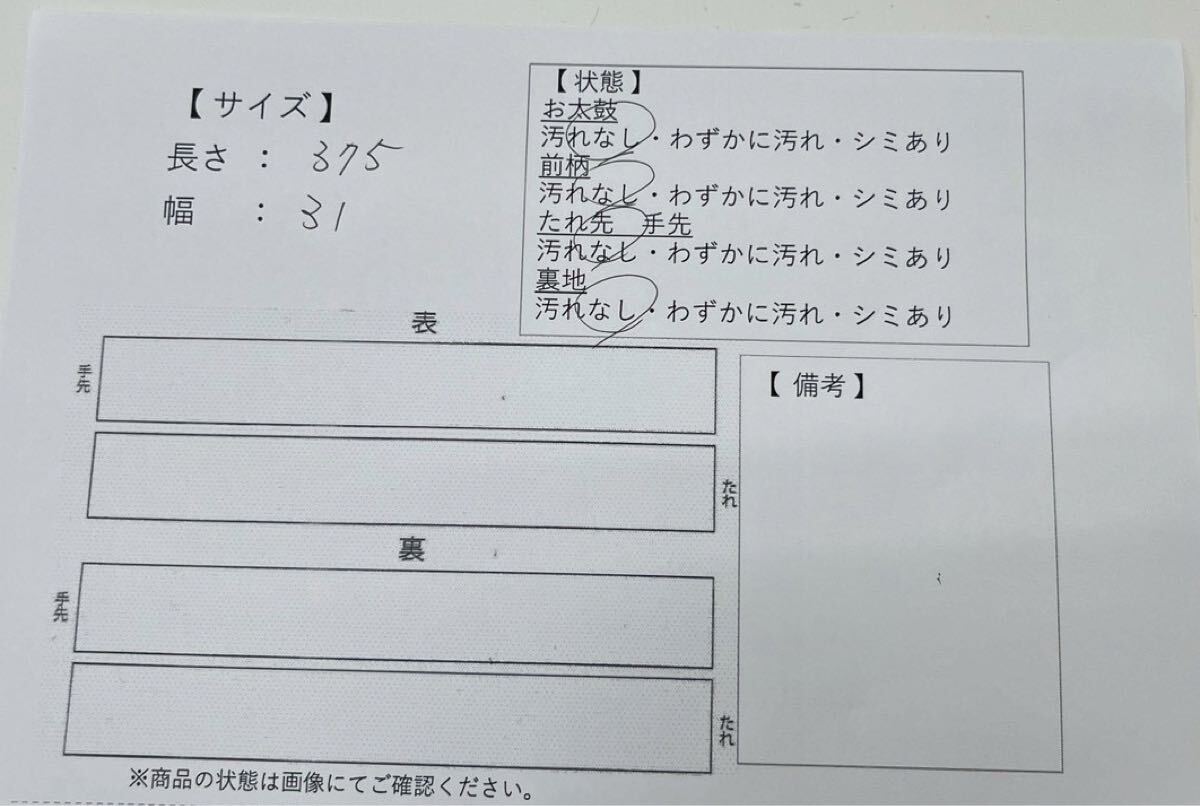 【サイズ】
長さ : 375
幅 : 31
【状態】
お太鼓
汚れなし・わずかに汚れ・シミあり
前柄
汚れなし・わずかに汚れ・シミあり
たれ先 手先
汚れなし・わずかに汚れ・シミあり
裏地
汚れなし・わずかに汚れ・シミあり
表
手先
たれ
裏
手先
たれ
【備考】
※商品の状態は画像にてご確認ください。